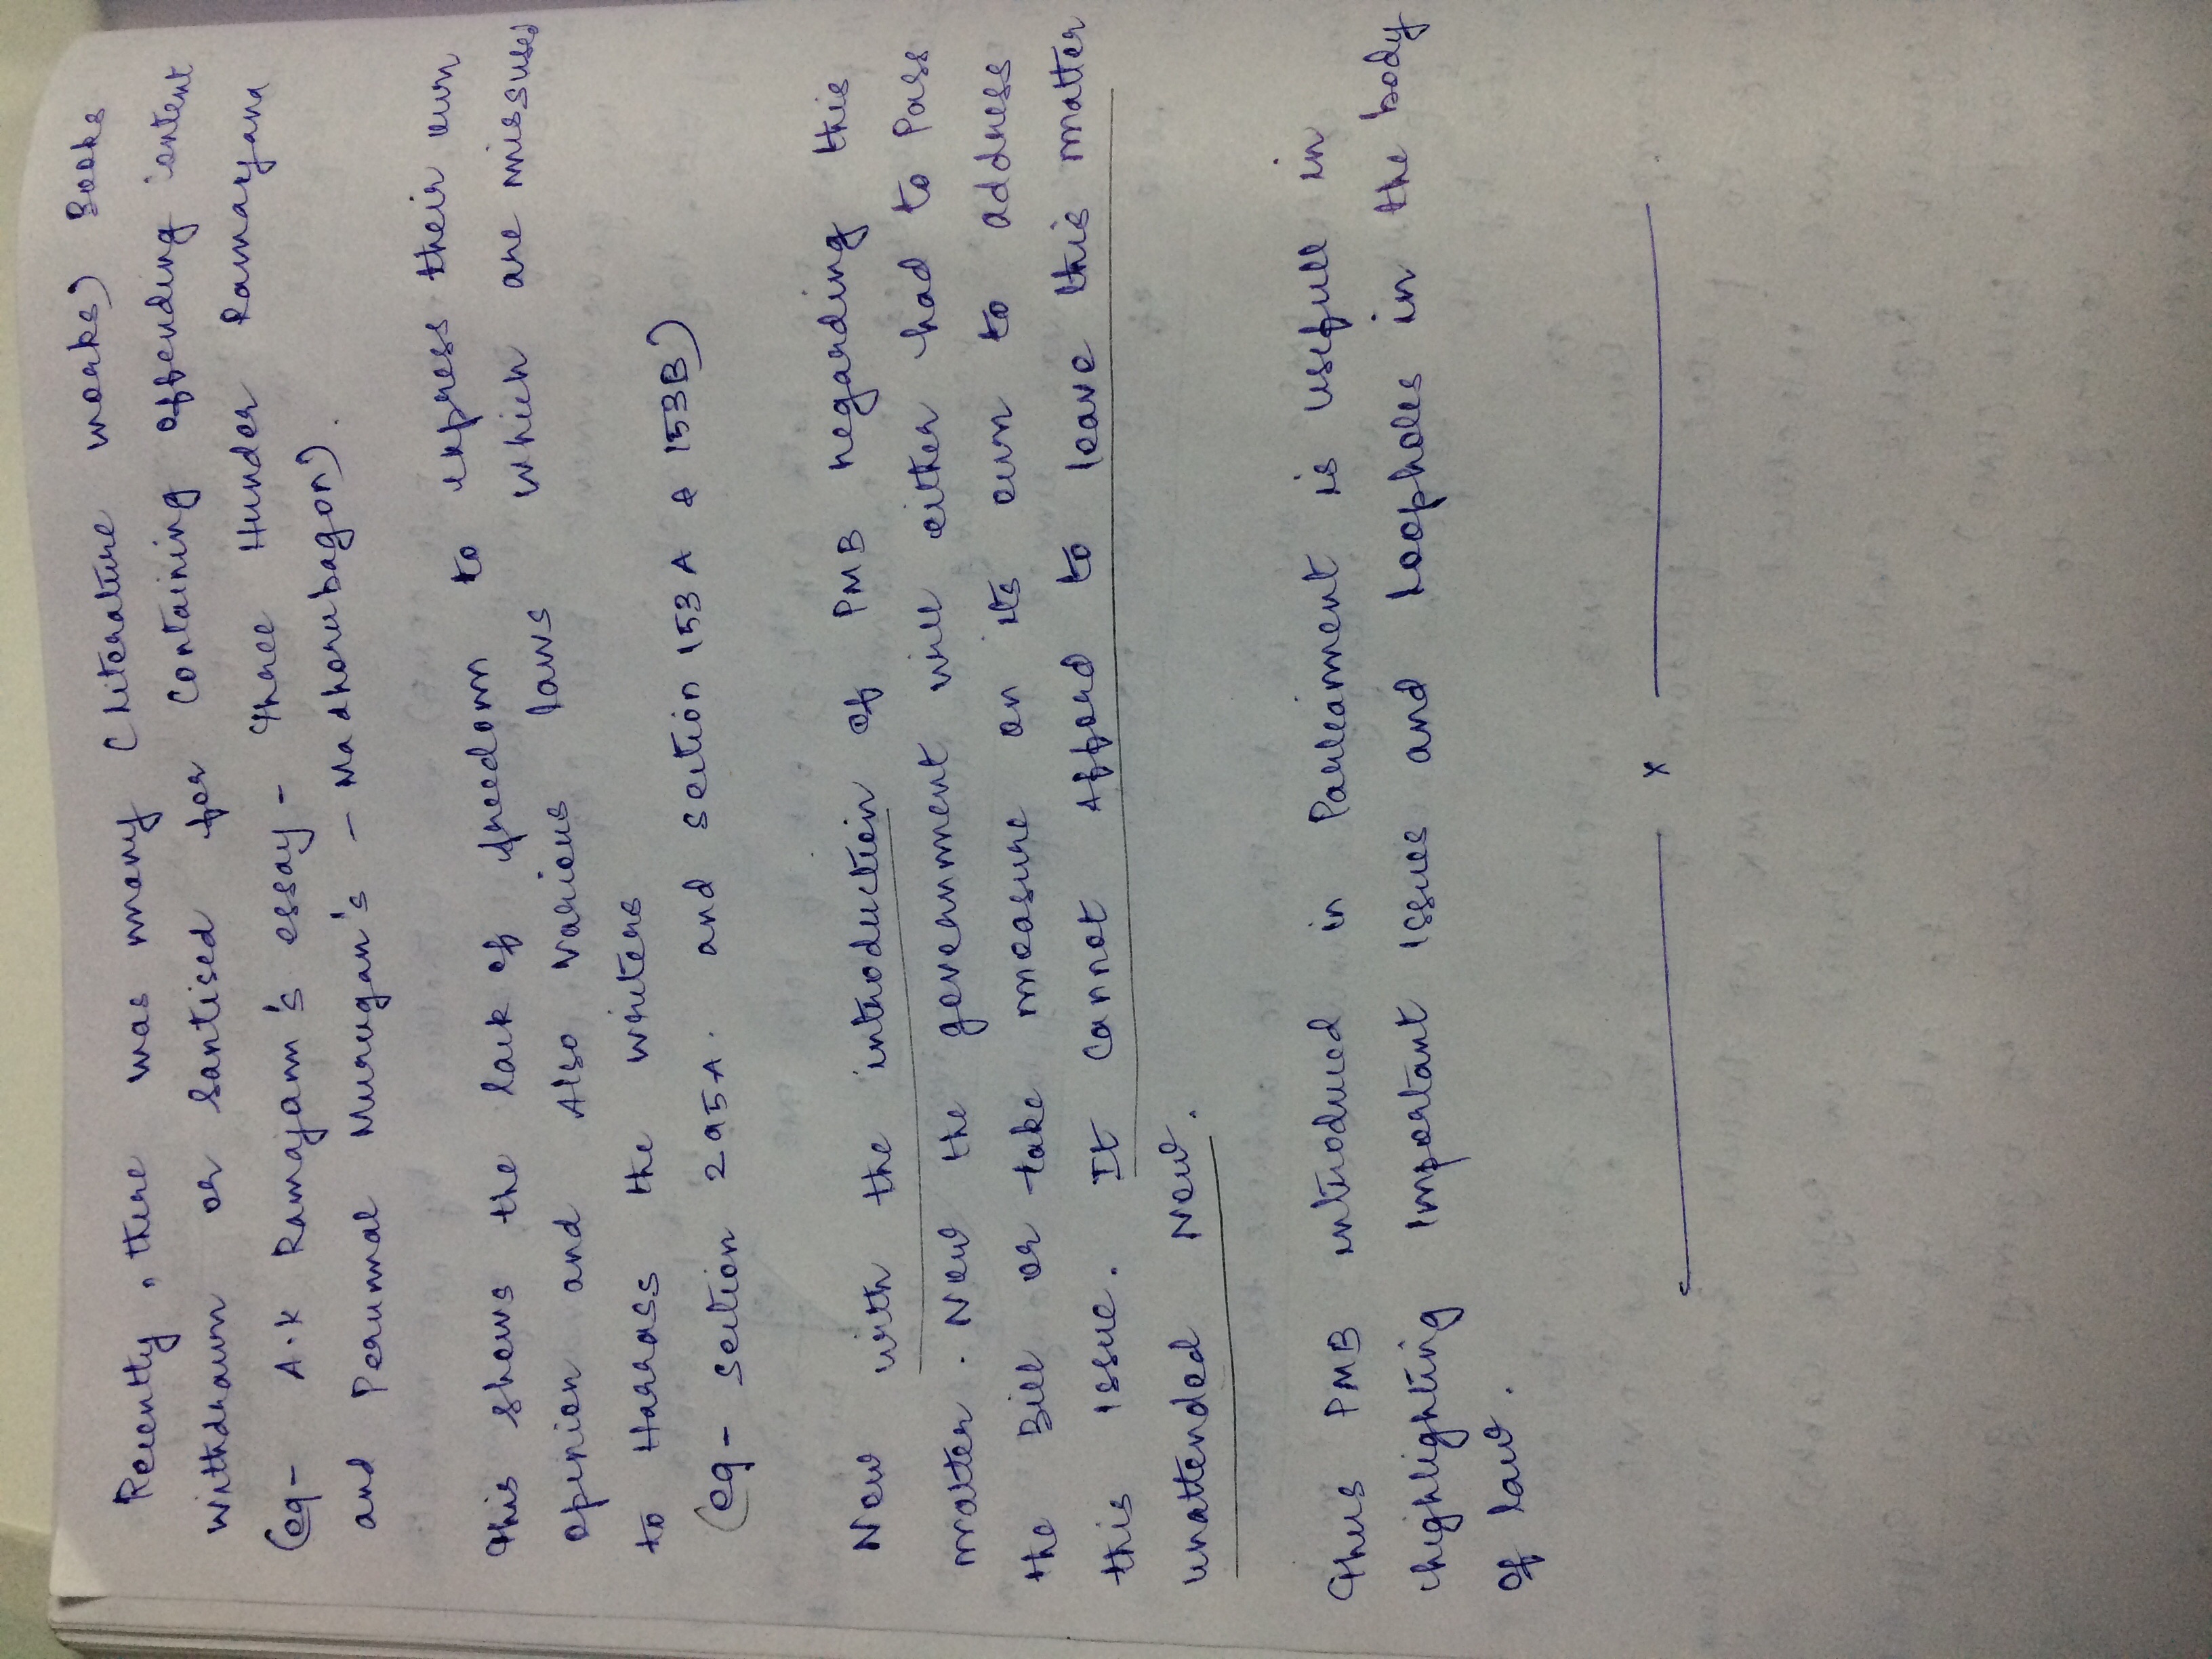 Recently, there was many (Literature works) Books
withdrawn or santised for containing offending intent
(eg- A.K Ramajam's essay- Three Hunder Ramayana
and Perumal Murugan's - Madhorubagon).
This shows the lack of freedom to express their own
opinion and Also various laws which are missused
to Harrass the writers
(eg- section 295A. and section 153A & 153B)
Now with the introduction of PMB regarding this
matter. Now the government will either had to Pass
the Bill or take measure on its own to address
this issue. It cannot Afford to leave this matter
unattended Now.
Thus PMB introduced in Parleament is usefull in
highlighting Important issues and Loopholes in the body
of law.
x